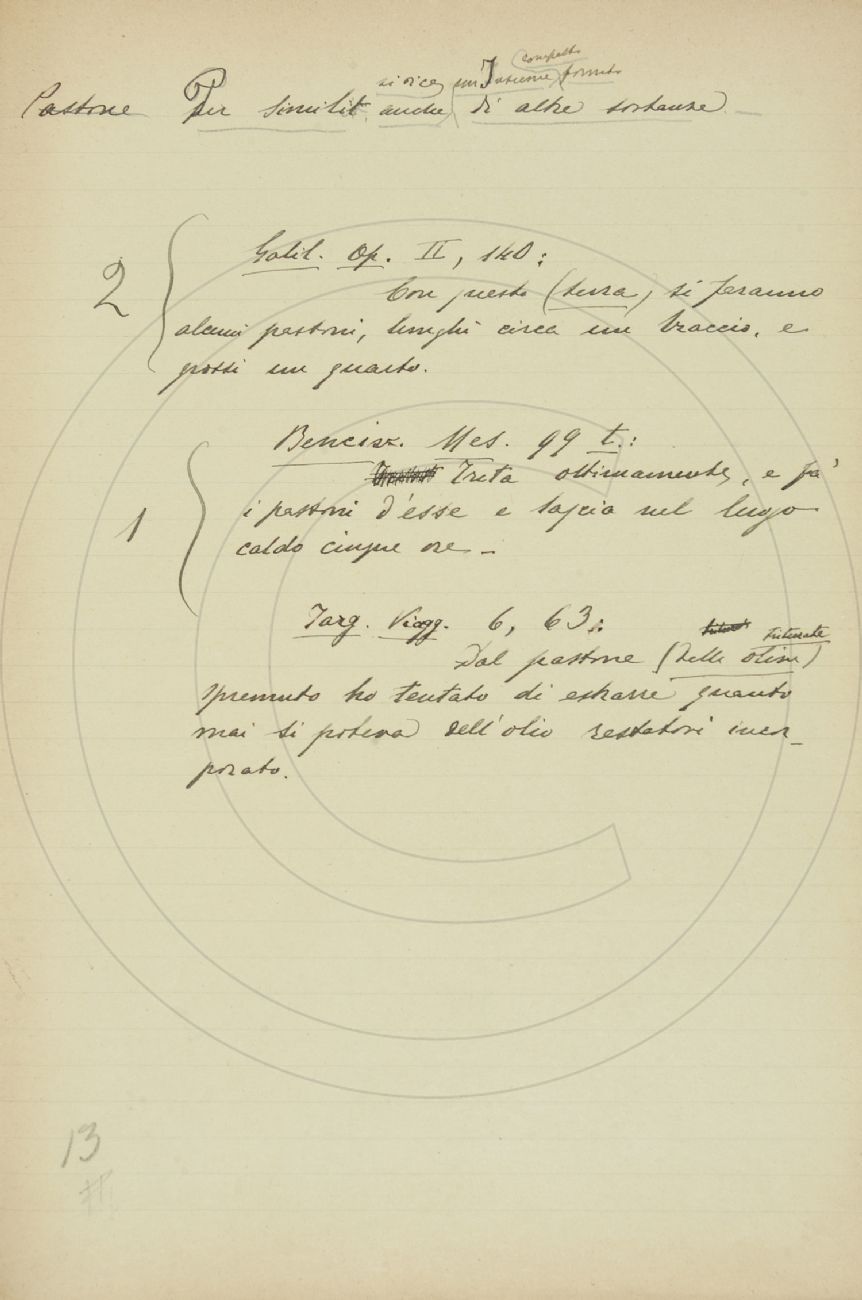 si dice un Insieme compatto formato
Pastone Per similit. anche di altre sostanze.
2
Galil. Op. II, 140:
Con questo (terra) si faranno
alcuni pastoni, lunghi circa un braccio, e
grossi un quarto.
Bencisz. Mes. 99 t.:
Trita ottimamente, e fa'
1
i pastoni d'esse e lascia nel luogo
caldo cinque ore —
Targ. Viagg. 6, 63:
triturate
Dal pastone (delle olive)
spremuto ho tentato di estrarre quanto
mai si poteva dell'olio restatovi incor-
porato.
13